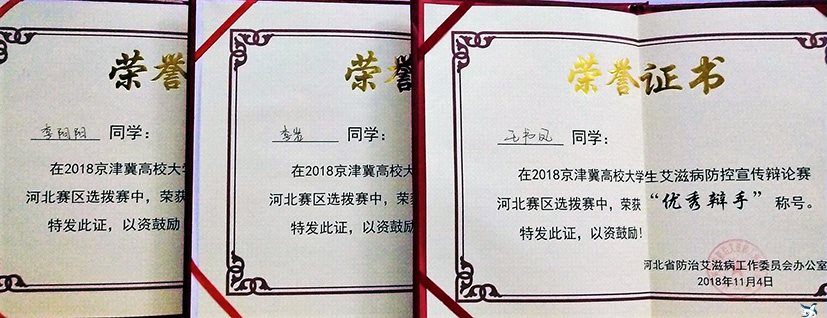 荣誉
李阿阳 同学：
在2018京津冀高校大学
河北赛区选拨赛中，荣获
特发此证，以资鼓励
荣誉
李岩 同学：
在2018京津冀高校大学
河北赛区选拨赛中，荣获
特发此证，以资鼓励
荣誉证书
王书凤 同学：
在2018京津冀高校大学生艾滋病防控宣传辩论赛
河北赛区选拨赛中，荣获“优秀辩手”称号。
特发此证，以资鼓励！
河北省防治艾滋病工作委员会办公室
2018年11月4日